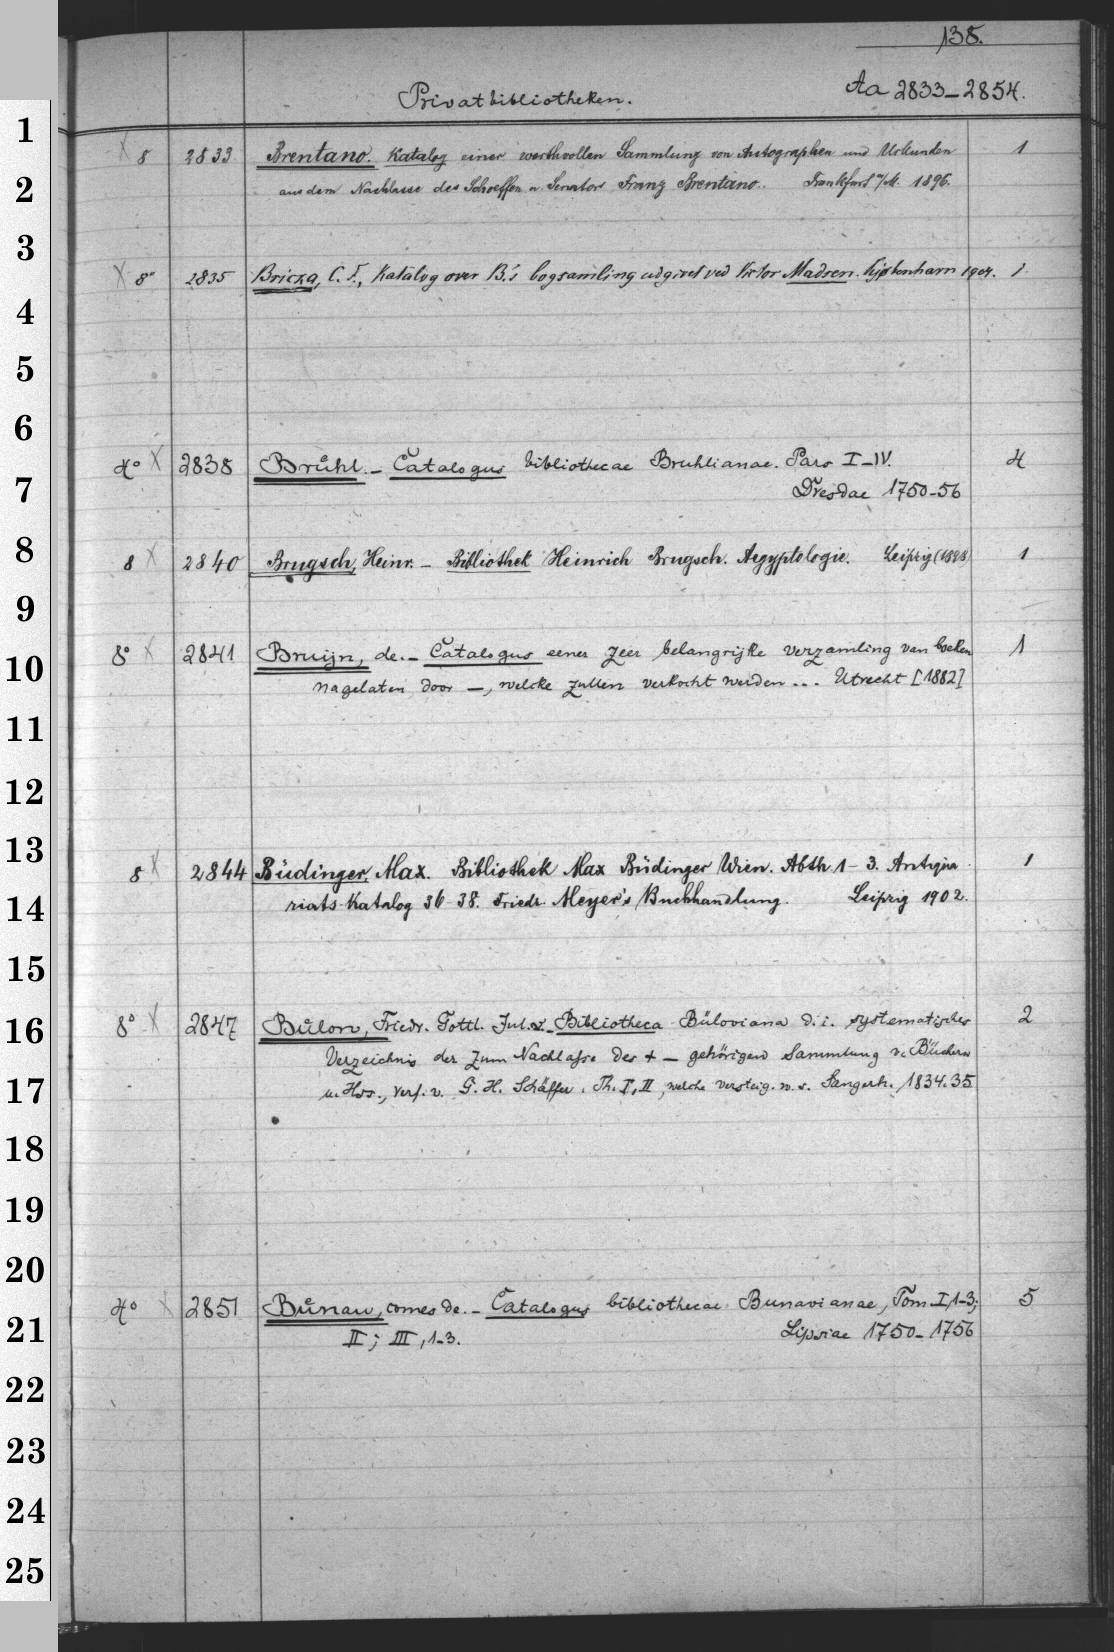 138.
Privatbibliotheken.
Aa 2833-2854.
1
X 8 2833 Brentano. Katalog einer werthvollen Sammlung von Autographen und Urkunden 1
2
aus dem Nachlasse des Schoeffen u. Senators Franz Brentano. Frankfurt a/M. 1896.
3
X 8° 2835 Bricka, C. F., Katalog over B.'s bogsamling udgivet ved Victor Madsen. Kjøbenhavn 1904. 1
4
5
6
4° X 2838 Brühl. - Catalogus bibliothecae Bruhlianae. Pars I-IV. 4
7
Dresdae 1750-56
8
8 X 2840 Brugsch, Heinr. - Bibliothek Heinrich Brugsch. Aegyptologie. Leipzig (1898) 1
9
8° X 2841 Bruijn, de. - Catalogus eener zeer belangrijke verzameling van boeken 1
10
nagelaten door —, welke zullen verkocht werden ... Utrecht [1882]
11
12
13
8 X 2844 Büdinger, Max. Bibliothek Max Büdinger Wien. Abth 1-3. Antiqua- 1
14
riats-Katalog 36-38. Friedr. Meyer's Buchhandlung. Leipzig 1902.
15
8° X 2847 Bülow, Friedr. Gottl. Jul. v. - Bibliotheca Büloviana d. i. systematisches 2
16
Verzeichnis der zum Nachlasse des + — gehörigen Sammlung v. Büchern
17
u. Hss., verf. v. G. H. Schäffer. Th. I, II, welche versteig. w. s. Sangerh. 1834.35
18
19
20
4° X 2851 Bünau, comes de. - Catalogus bibliothecae Bunavianae, Tom. I, 1-3; 5
21
II; III, 1-3. Lipsiae 1750-1756
22
23
24
25